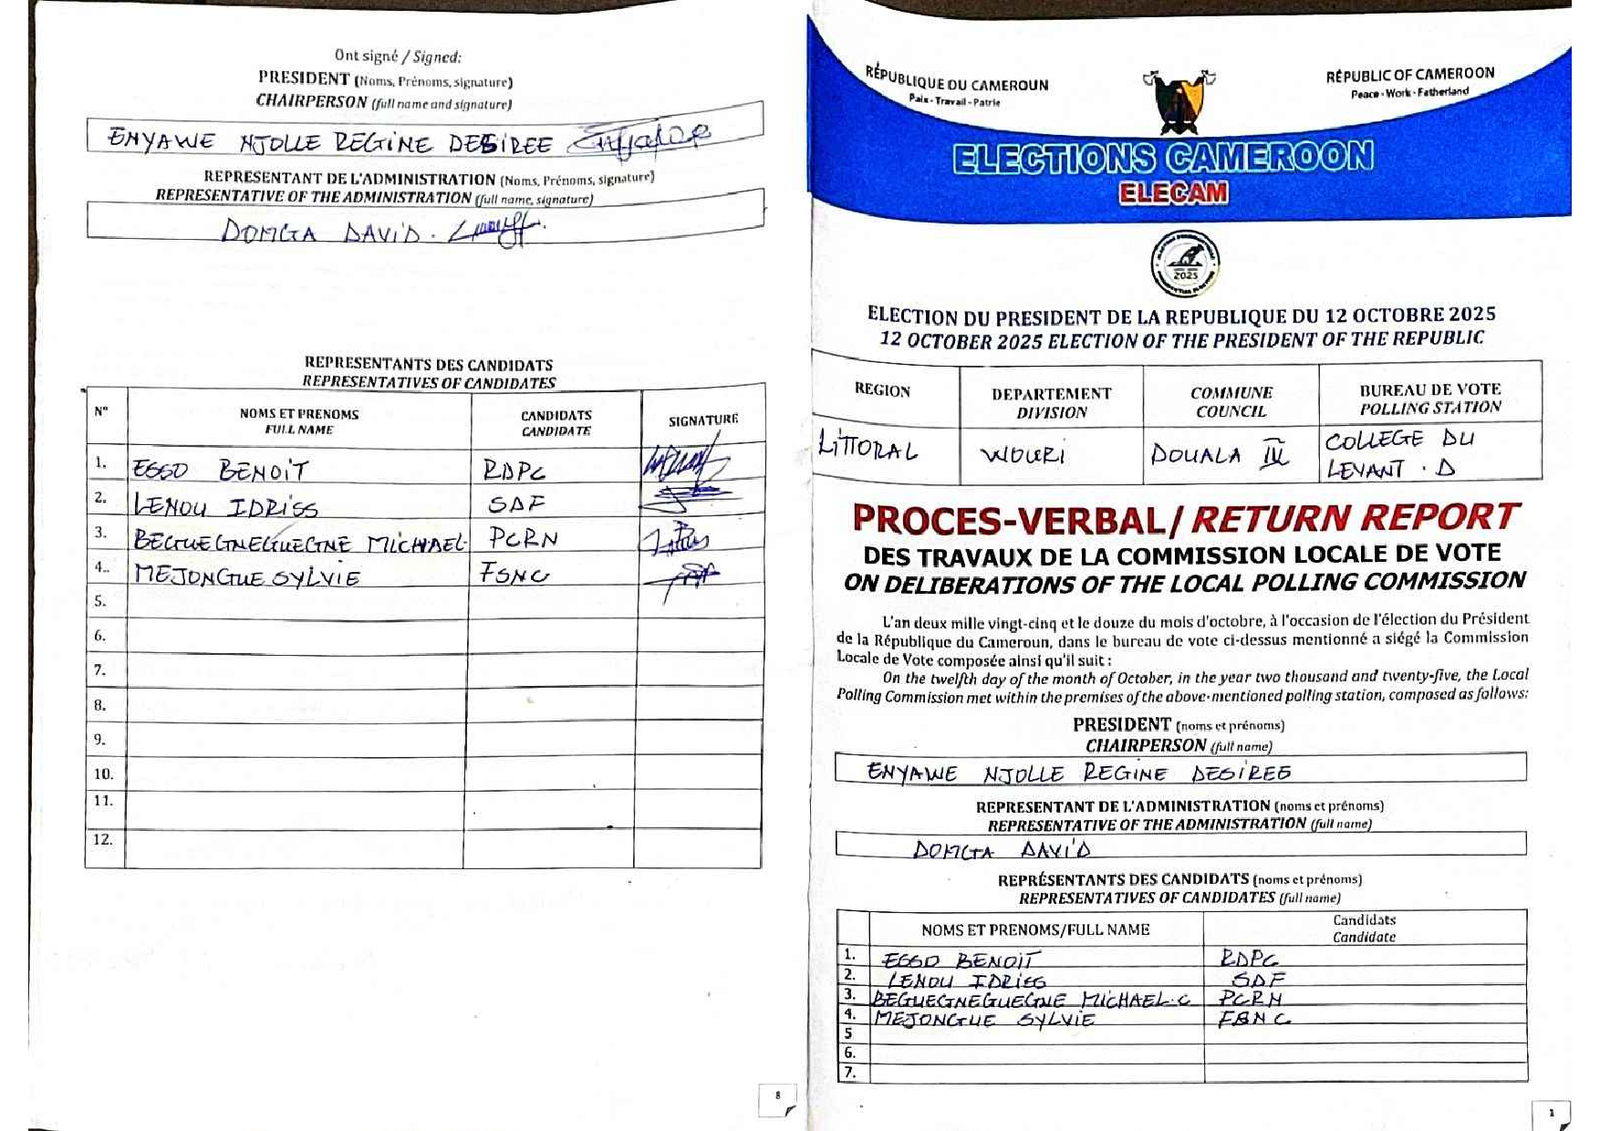 Ont signé / Signed:
PRESIDENT (Noms, Prénoms, signature)
CHAIRPERSON (full name and signature)
ENYAWE NJOLLE REGINE DESIREE
REPRESENTANT DE L'ADMINISTRATION (Noms, Prénoms, signature)
REPRESENTATIVE OF THE ADMINISTRATION (full name, signature)
DOMGA DAVID.
REPRESENTANTS DES CANDIDATS
REPRESENTATIVES OF CANDIDATES
N° NOMS ET PRENOMS FULL NAME CANDIDATS CANDIDATE SIGNATURE
1. ESSO BENOIT RDPC
2. LENOU IDRISS SDF
3. BEGUEGNEGUEGNE MICHAEL PCRN
4.. MEJONGUE SYLVIE FSNC
5.
6.
7.
8.
9.
10.
11.
12.
8
RÉPUBLIQUE DU CAMEROUN
Paix - Travail - Patrie
RÉPUBLIC OF CAMEROON
Peace - Work - Fatherland
ELECTIONS CAMEROON
ELECAM
2025
ELECTION DU PRESIDENT DE LA REPUBLIQUE DU 12 OCTOBRE 2025
12 OCTOBER 2025 ELECTION OF THE PRESIDENT OF THE REPUBLIC
REGION DEPARTEMENT DIVISION COMMUNE COUNCIL BUREAU DE VOTE POLLING STATION
LITTORAL WOURI DOUALA III COLLEGE DU LEVANT . D
PROCES-VERBAL/ RETURN REPORT
DES TRAVAUX DE LA COMMISSION LOCALE DE VOTE
ON DELIBERATIONS OF THE LOCAL POLLING COMMISSION
L'an deux mille vingt-cinq et le douze du mois d'octobre, à l'occasion de l'élection du Président
de la République du Cameroun, dans le bureau de vote ci-dessus mentionné a siégé la Commission
Locale de Vote composée ainsi qu'il suit :
On the twelfth day of the month of October, in the year two thousand and twenty-five, the Local
Polling Commission met within the premises of the above-mentioned polling station, composed as follows:
PRESIDENT (noms et prénoms)
CHAIRPERSON (full name)
ENYAWE NJOLLE REGINE DESIREE
REPRESENTANT DE L'ADMINISTRATION (noms et prénoms)
REPRESENTATIVE OF THE ADMINISTRATION (full name)
DOMGA DAVID
REPRÉSENTANTS DES CANDIDATS (noms et prénoms)
REPRESENTATIVES OF CANDIDATES (full name)
NOMS ET PRENOMS/FULL NAME Candidats Candidate
1. ESSO BENOIT RDPC
2. LENOU IDRISS SDF
3. BEGUEGNEGUEGNE MICHAEL.C PCRN
4. MEJONGUE SYLVIE FSNC
5
6.
7.
1